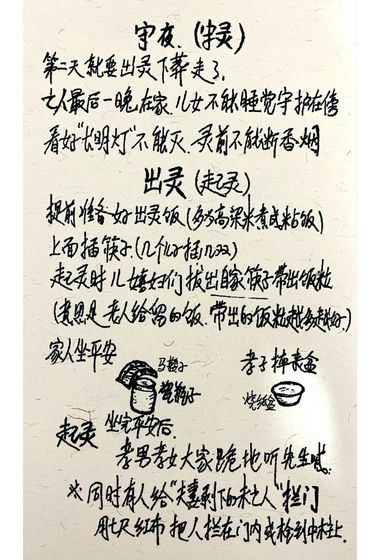 守夜.(守灵)
第二天就要出灵下葬走了.
亡人最后一晚在家.儿女不能睡觉守护在傍
看好“长明灯”不能灭.灵前不能断香烟
出灵(起灵)
提前准备好出灵饭(多巧高粱米煮成粘饭)
上面插筷子(几个儿子插几双)
起灵时儿媳妇们拔出自家筷子带出饭粒
(意思是老人给留的饭.带出的饭粒越多越好.)
家人坐平安
马鞍子
孝子摔丧盆
烧纸盆
起灵
坐完平安后.
孝男孝女大家跪地听先生喊.
※同时有人给“夫妻剩下的未亡人”拦门
用七尺红布把人拦在门内或栓到中柱上.